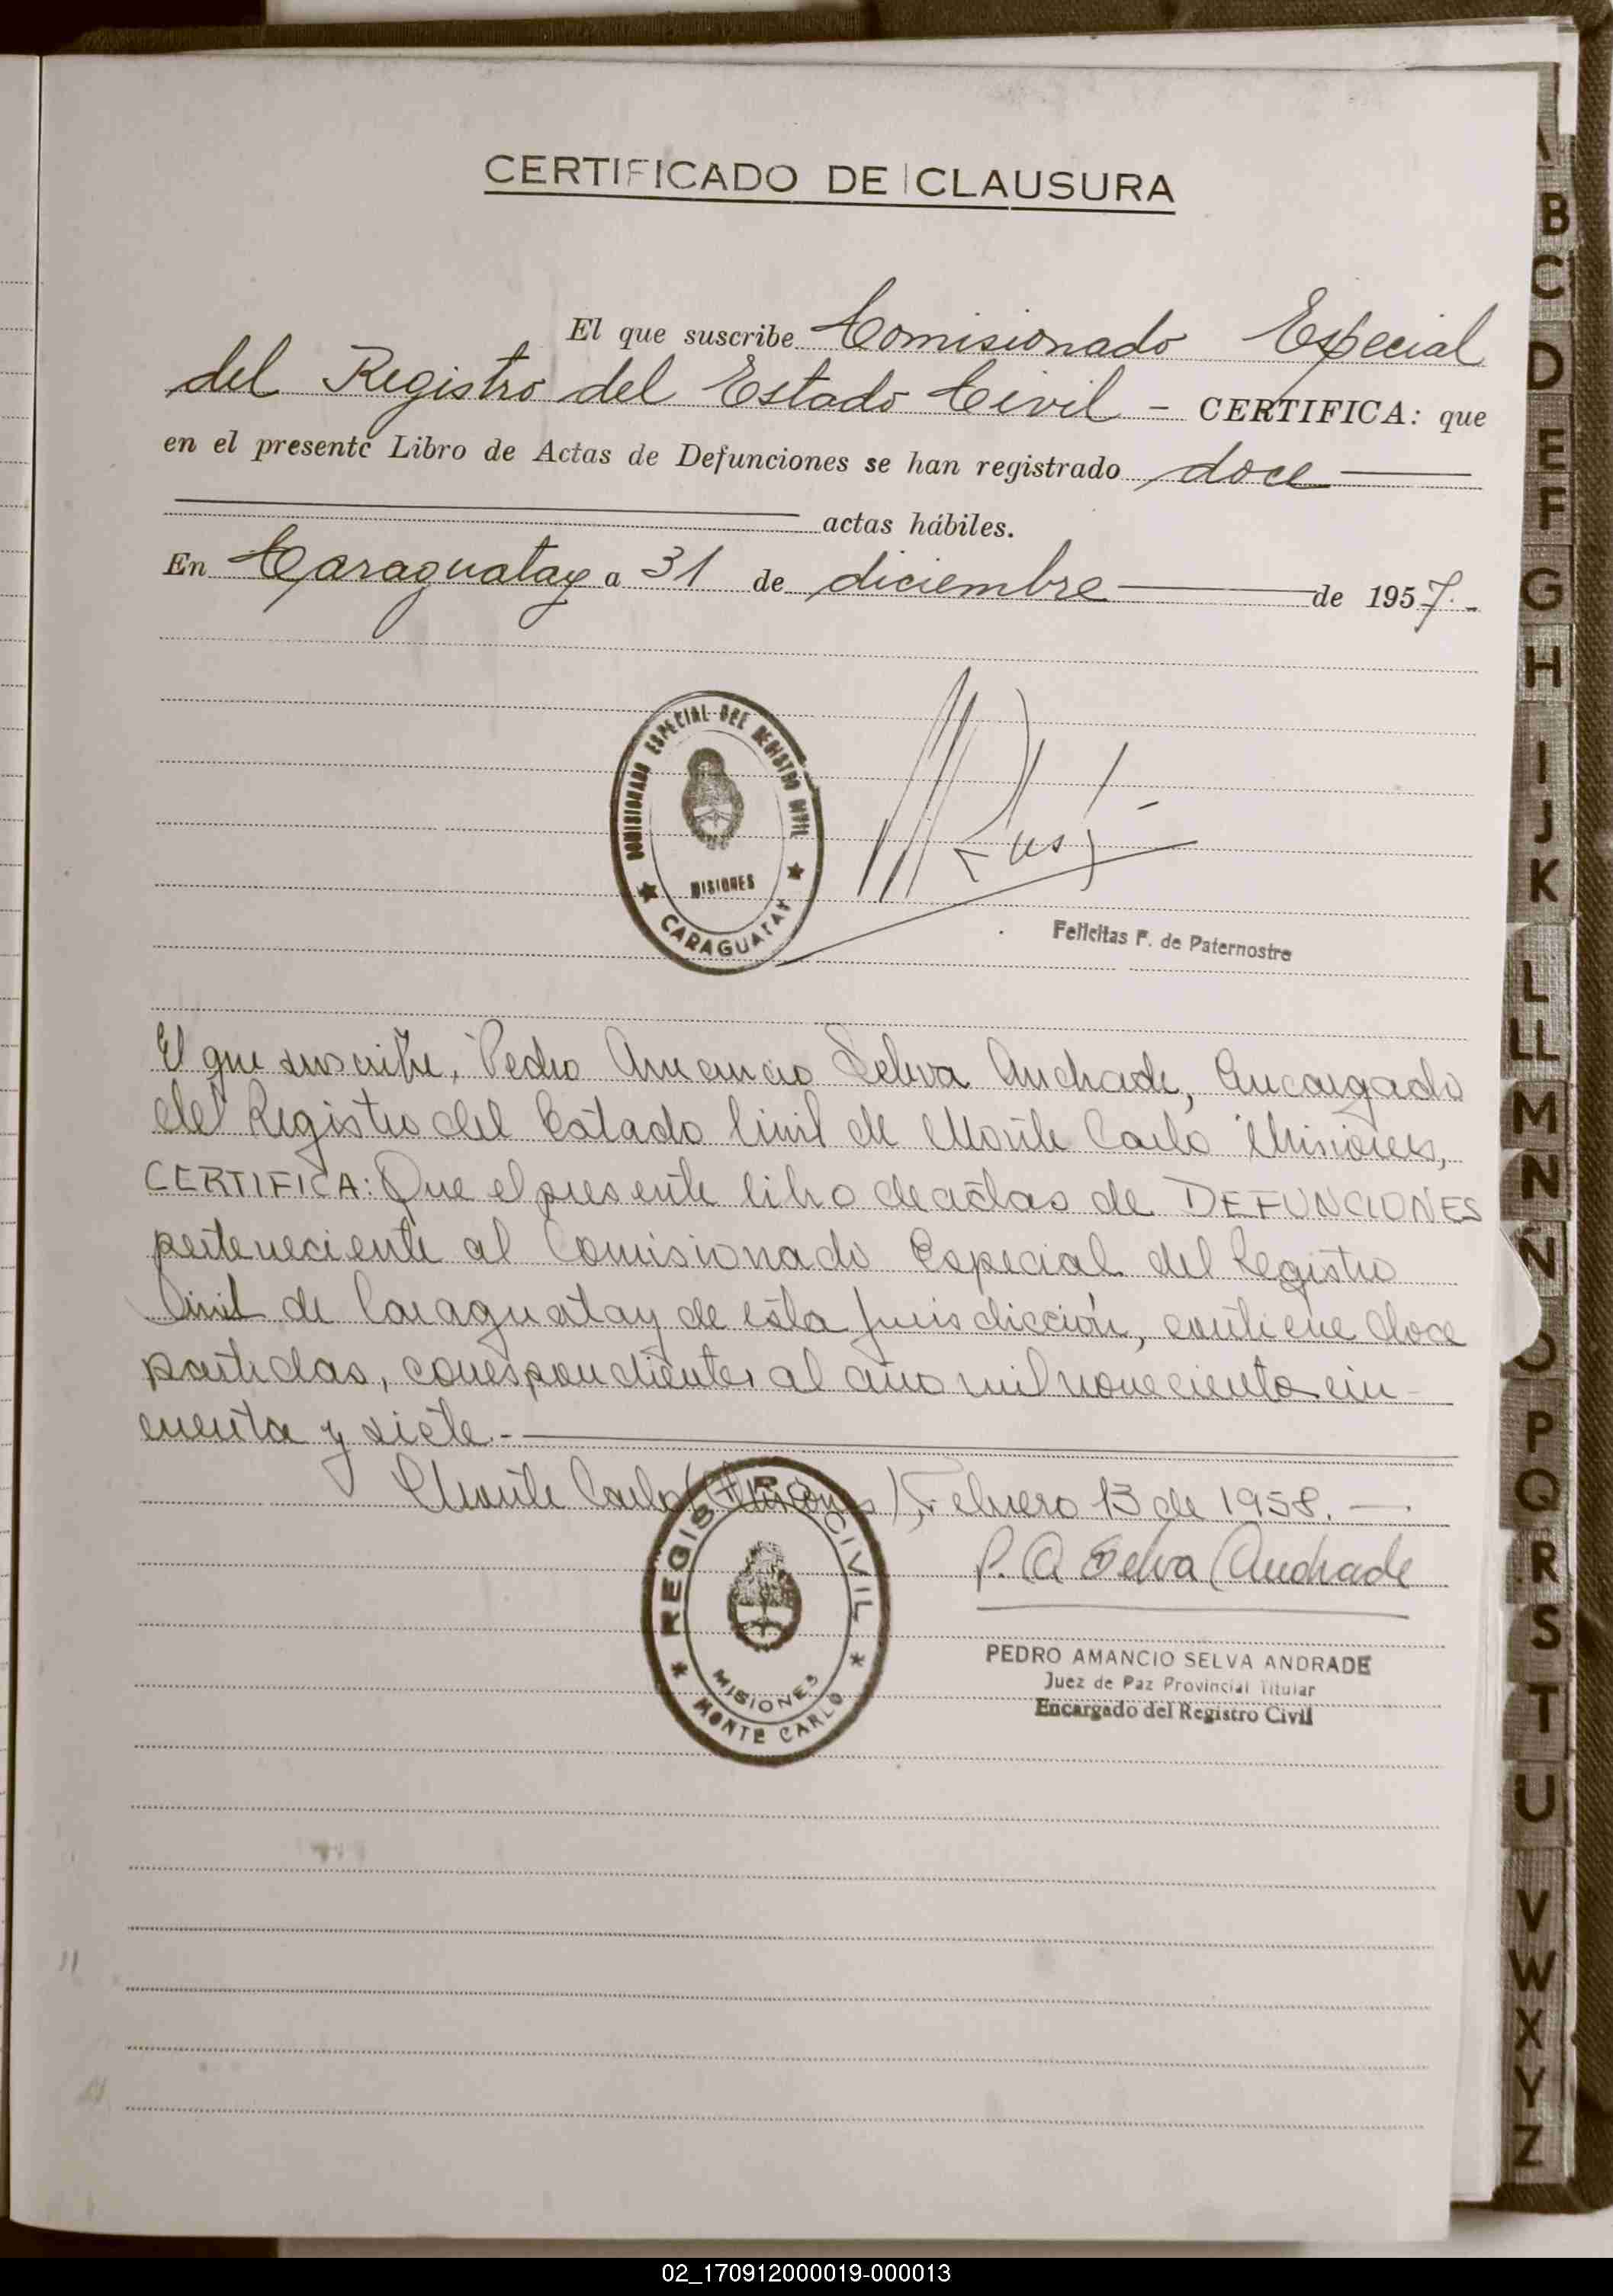 CERTIFICADO DE CLAUSURA
El que suscribe Comisionado Especial
del Registro del Estado Civil - CERTIFICA: que
en el presente Libro de Actas de Defunciones se han registrado doce
actas hábiles.
En Caraguatay a 31 de diciembre de 1957.-
COMISIONADO ESPECIAL DEL REGISTRO CIVIL
MISIONES
CARAGUATAY
Felicitas F. de Paternostre
El que suscribe, Pedro Amancio Selva Andrade, Encargado
del Registro del Estado Civil de Monte Carlo Misiones,
CERTIFICA: Que el presente libro de actas de DEFUNCIONES
perteneciente al Comisionado Especial del Registro
Civil de Caraguatay de esta jurisdicción, contiene doce
partidas, correspondientes al año mil novecientos cin-
cuenta y siete.-
Monte Carlo (Misiones), Febrero 13 de 1958.-
REGISTRO CIVIL
MISIONES
MONTE CARLO
P. A Selva Andrade
PEDRO AMANCIO SELVA ANDRADE
Juez de Paz Provincial Titular
Encargado del Registro Civil
B
C
D
E
F
G
H
I
J
K
L
LL
M
N
Ñ
O
P
Q
R
S
T
U
V
W
X
Y
Z
02_170912000019-000013